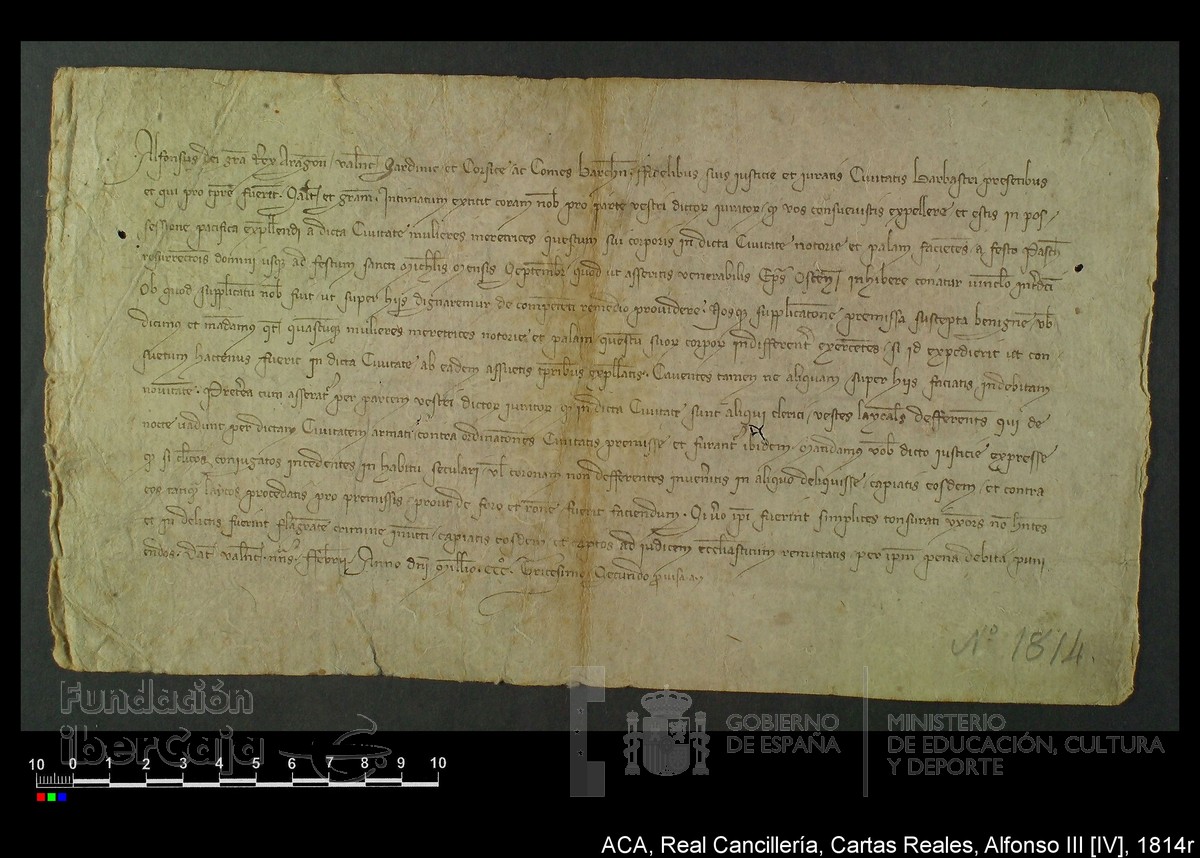 Alfonsus dei gra Rex Aragon Valnt Sardinie et Corsice ac Comes Barchn. Fidelibus suis iusticie et iuratis Civitatis Barbastri presentibus
et qui pro tpre fuerit. Salt et gram. Intimatum extitit coram nob pro parte vestri dictor iurator qd vos consuevistis expellere et estis in pos-
sessione pacifica expllendi a dicta Civitate mulieres meretrices questum sui corporis in dicta Civitate notorie et palam facientes a festo Pasch
resurrectois domini usqz ad festum sancti Michlis mensis Septembr quod ut asseritis venerabilis Eps Oscen inhibere conatur
Ob quod supplicatu nob fuit ut super hijs dignaremur de competeti remedio providere. Nosqz supplicatone premissa suscepta benigne vob
dicimus et madamus qt quascuqz mulieres meretrices notorie et palam questu suor corpor indifferentr exercetes si id expedierit ut con
suetum hactenus fuerit in dicta Civitate ab eadem assuetis tpribus expllatis. Caventes tamen ne aliquam super hijs faciatis indebitam
novitate. Preterea cum asserat per partem vestri dictor iurator qd in dicta Civitate sunt aliqui clerici vestes laycals defferentes qui de
nocte vadunt per dictam Civitatem armati contra ordinatones Civitatis premisse et furant ibidem. Mandamus vob dicto iusticie expresse
qd si clicos coniugatos incedentes in habitu seculari vl coronam non defferentes inveneritis in aliquo deliquisse capiatis eosdem et contra
eos tanqz laicos procedatis pro premissis prout de foro et rone fuerit faciendum. Si vero ipi fuerint simplices tonsurati uxors no hntes
et in delictis fuerint flagrate crimine inventi capiatis eosdem et captos ad iudicem eccliasticum remittatis per ipm pena debita puni
endos. Dat Valnt Febrii Anno dni Millio CCC Tricesimo Secundo
No 1814.
Fundación
iberCaja
GOBIERNO
DE ESPAÑA
MINISTERIO
DE EDUCACIÓN, CULTURA
Y DEPORTE
10 0 1 2 3 4 5 6 7 8 9 10
ACA, Real Cancillería, Cartas Reales, Alfonso III [IV], 1814r